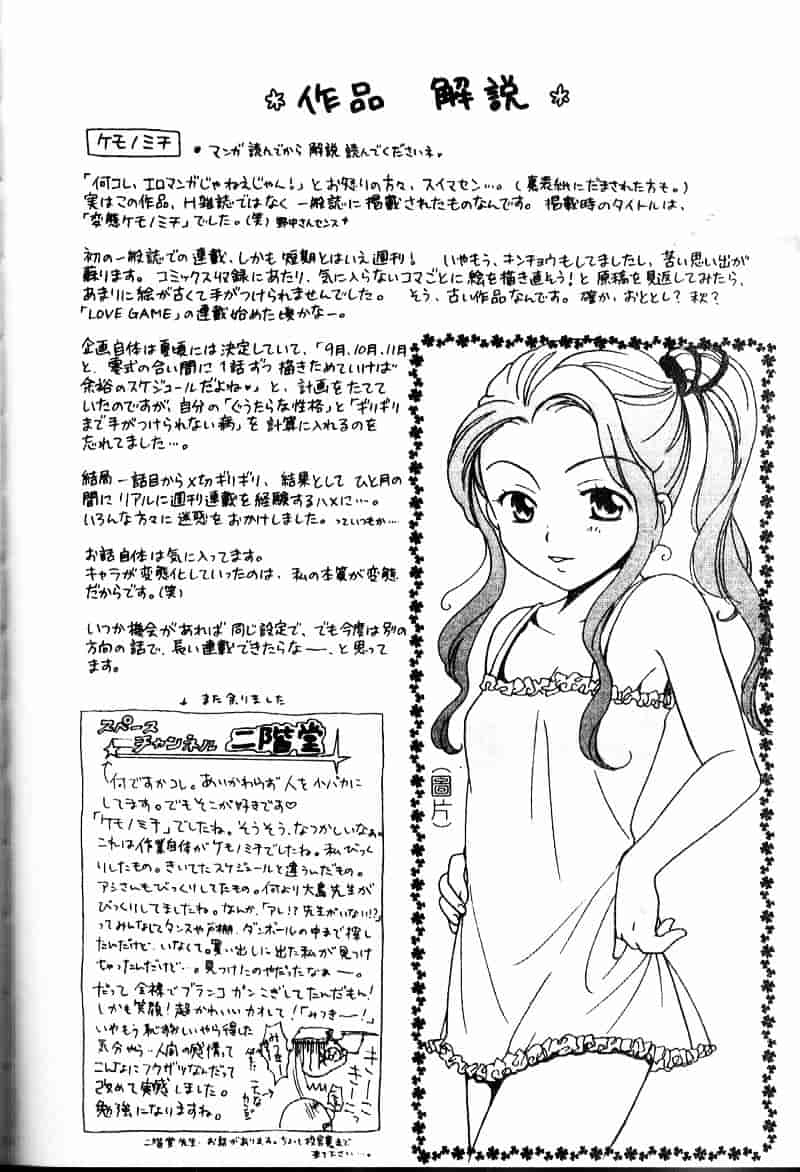 ＊作品 解説＊
ケモノミチ
・マンガ読んでから解説読んでくださいネ。
「何コレ、エロマンガじゃねえじゃん！」とお怒りの方々、スイマセン…。(裏表紙にだまされた方も。)
実はこの作品、H雑誌ではなく一般誌に掲載されたものなんです。掲載時のタイトルは、
「変態ケモノミチ」でした。(笑) 野中さんセンス
初の一般誌での連載、しかも短期とはいえ週刊！ いやもう、キンチョウもしてましたし、苦い思い出が
蘇ります。コミックス収録にあたり、気に入らないコマごとに絵を描き直そう！と原稿を見返してみたら、
あまりに絵が古くて手がつけられませんでした。 そう、古い作品なんです。確か、おととし？秋？
「LOVE GAME」の連載始めた頃かなー。
企画自体は夏頃には決定していて、「9月、10月、11月
と、零式の合い間に1話ずつ描きためていけば
余裕のスケジュールだよね♥」と、計画をたてて
いたのですが、自分の「ぐうたらな性格」と「ギリギリ
まで手がつけられない病」を計算に入れるのを
忘れてました…。
結局一話目から〆切ギリギリ、結果としてひと月の
間にリアルに週刊連載を経験するハメに…。
いろんな方々に迷惑をおかけしました。っていつもか…
お話自体は気に入ってます。
キャラが変態化していったのは、私の本質が変態
だからです。(笑)
いつか機会があれば同じ設定で、でも今度は別の
方向の話で、長い連載できたらなー、と思って
ます。
↓また余りました
スペース
チャンネル 二階堂
何ですかコレ。あいかわらず人を小バカに
してます。でもそこが好きです♡
「ケモノミチ」でしたね。そうそう、なつかしいなぁ。
これは作業自体がケモノミチでしたね。私びっく
りしたもの。きいてたスケジュールと違うんだもの。
アシさんもびっくりしてたもの。何より大島先生が
びっくりしてましたね。なんか、「アレ!?先生がいない!?」
ってみんなしてタンスや戸棚、ダンボールの中まで探し
たんだけど、いなくて。買い出しに出た私が見つけ
ちゃったんだけど…。見つけたのやだったなぁー。
だって全裸でブランコガンこぎしてたんだもん！
しかも笑顔！超かわいいカオして！「みつきー！」
いやもう恥ずかしいやら得した
気分やら…人間の感情って
こんなにフクザツなんだって
改めて実感しました。
勉強になりますね。
キーこ
キーこっ
二階堂先生、お話があります。ちょいと校舎裏まで
来て下さい…。
(圖片)